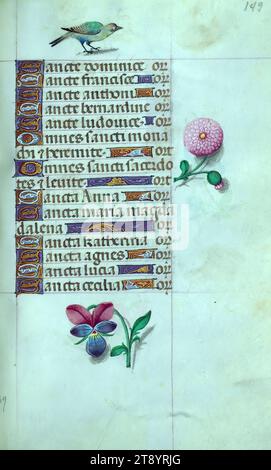 149
Sancte dominice or
Sancte francisce or
Sancte anthoni or
Sancte bernardine or
Sancte ludouice or
Omnes sancti mona
chi & heremite or
Omnes sancti sacerdo
tes & leuite or
Sancta Anna or
Sancta maria magda
dalena or
Sancta katherina or
Sancta agnes or
Sancta lucia or
Sancta cecilia or
alamy
Image ID: 2T8YRJG
www.alamy.com